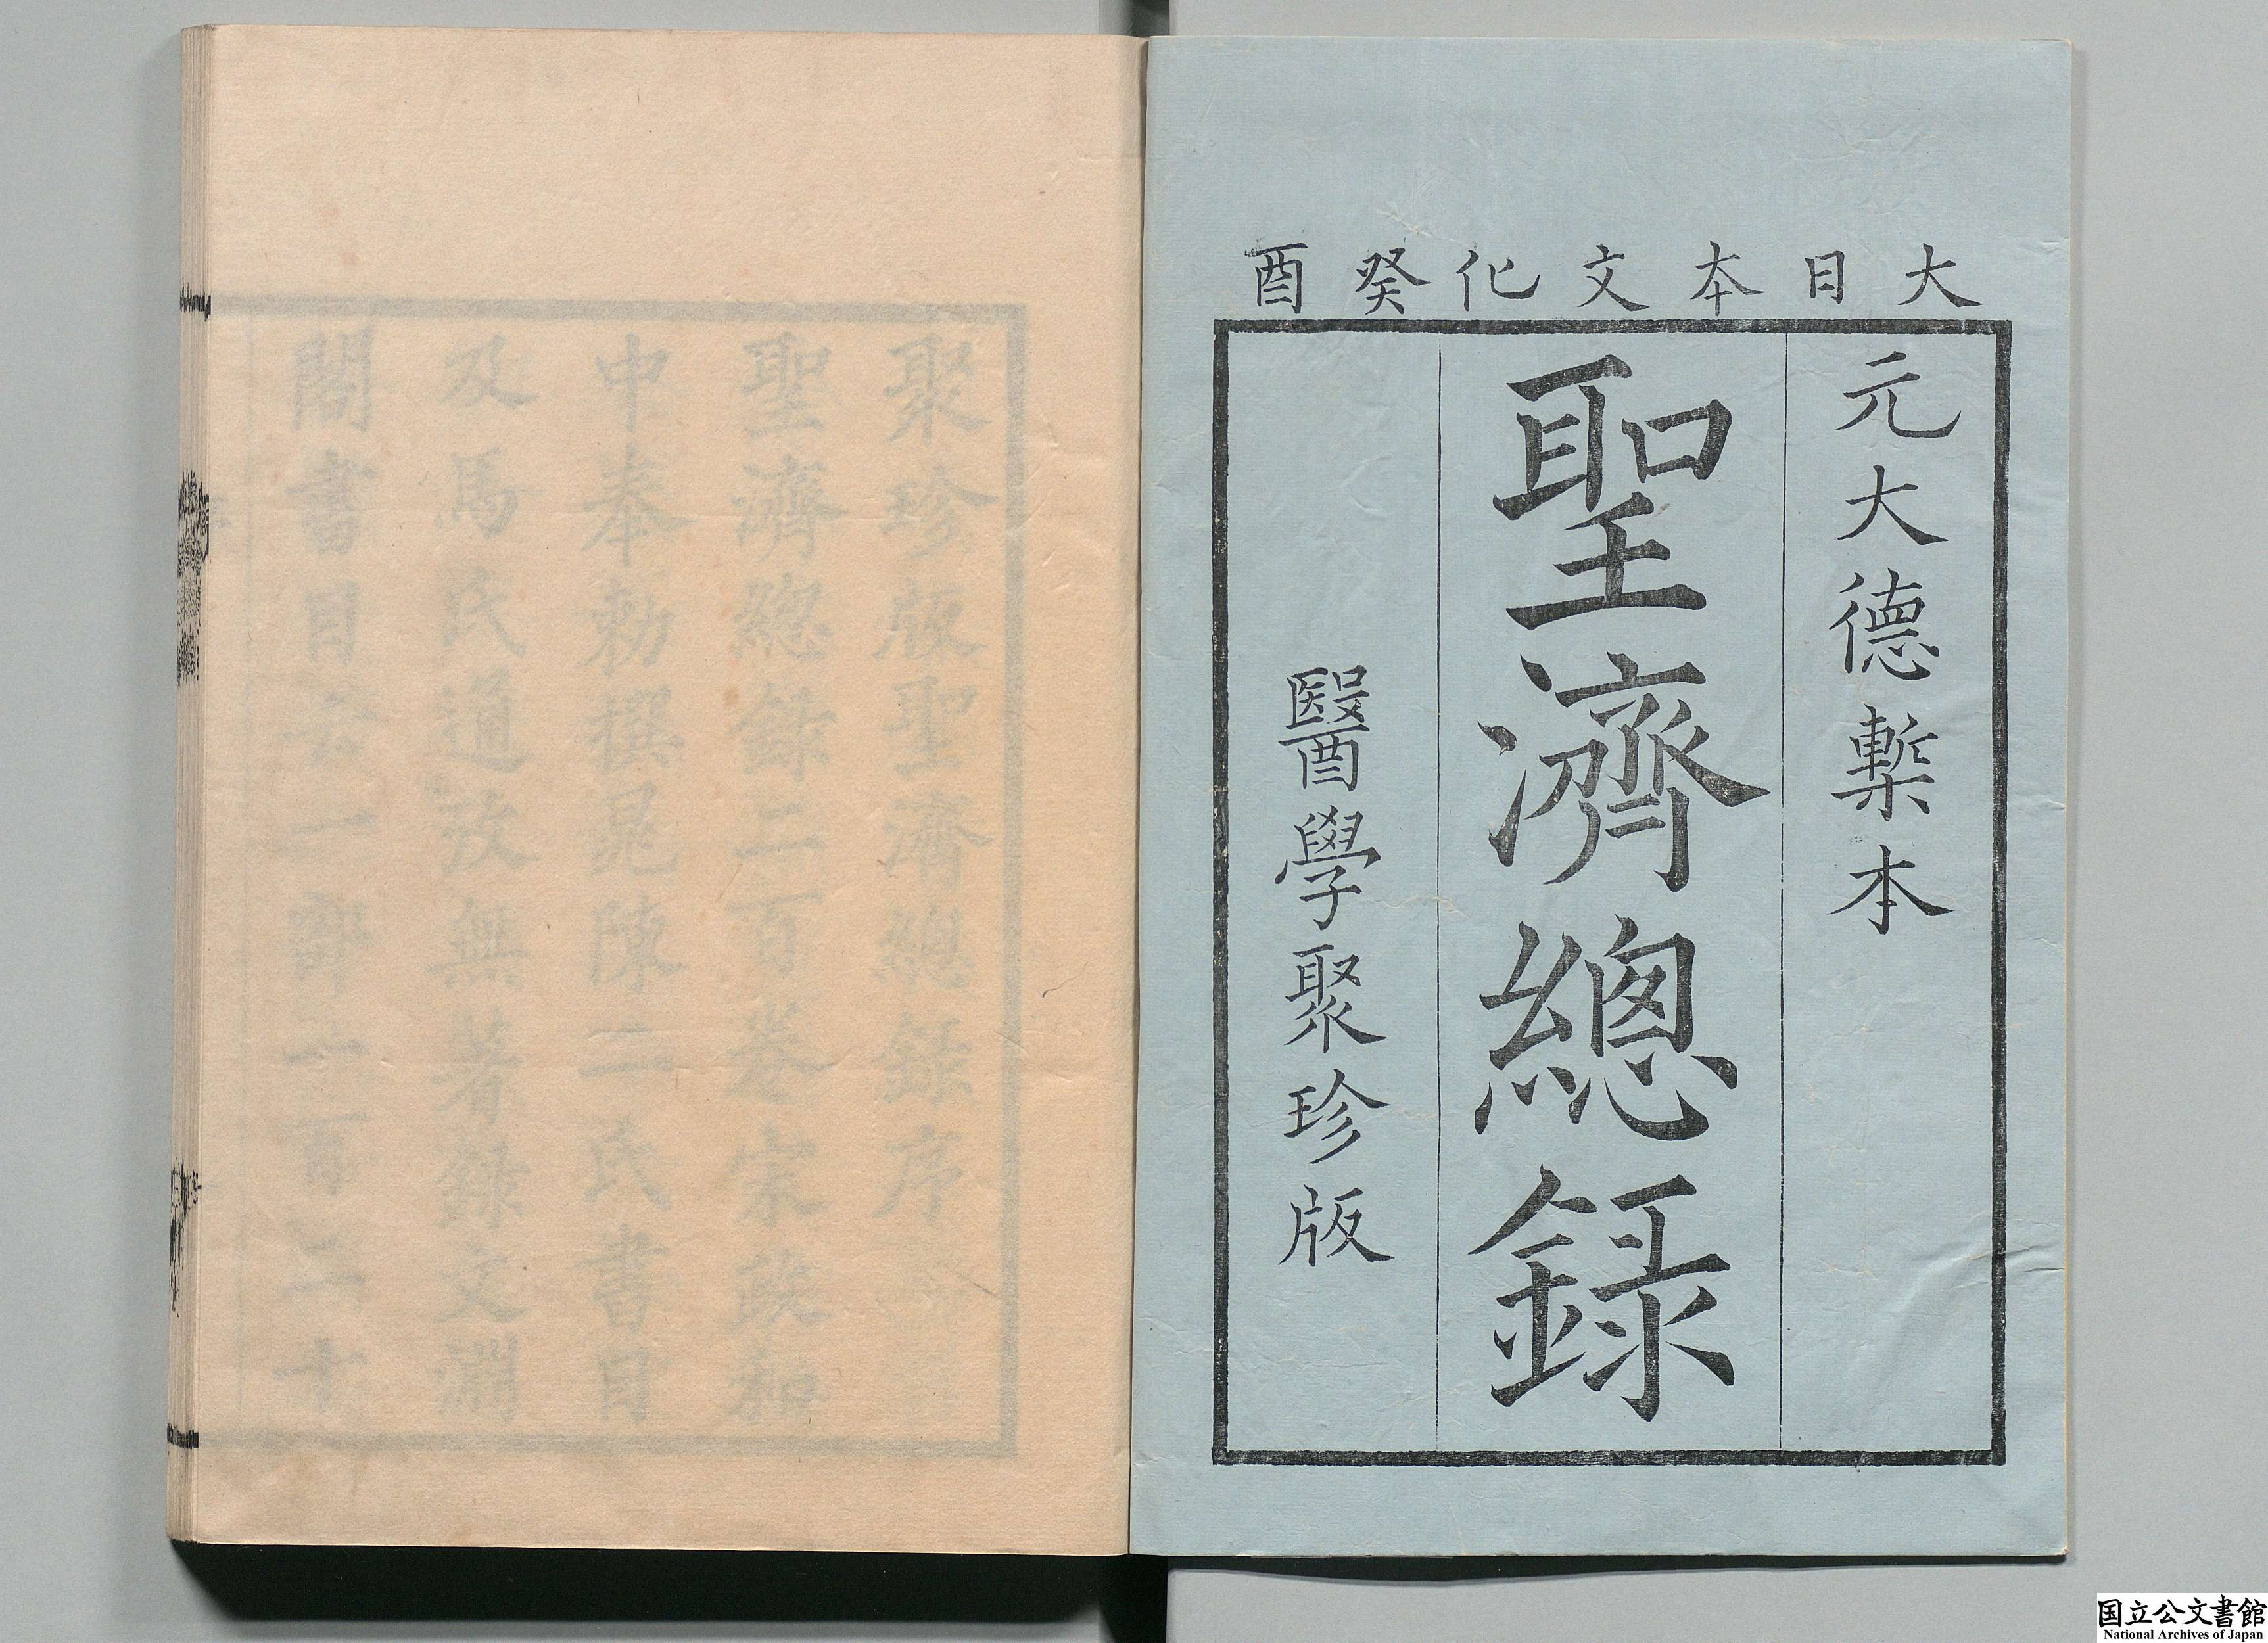 大日本文化癸酉
元大德槧本
聖濟總録
醫學聚珍版
聚珍版聖濟總錄序
聖濟總錄二百卷宋政和
中奉勅撰晁陳二氏書目
及馬氏通攷無著錄文淵
閣書目云一部一百二十
国立公文書館
National Archives of Japan